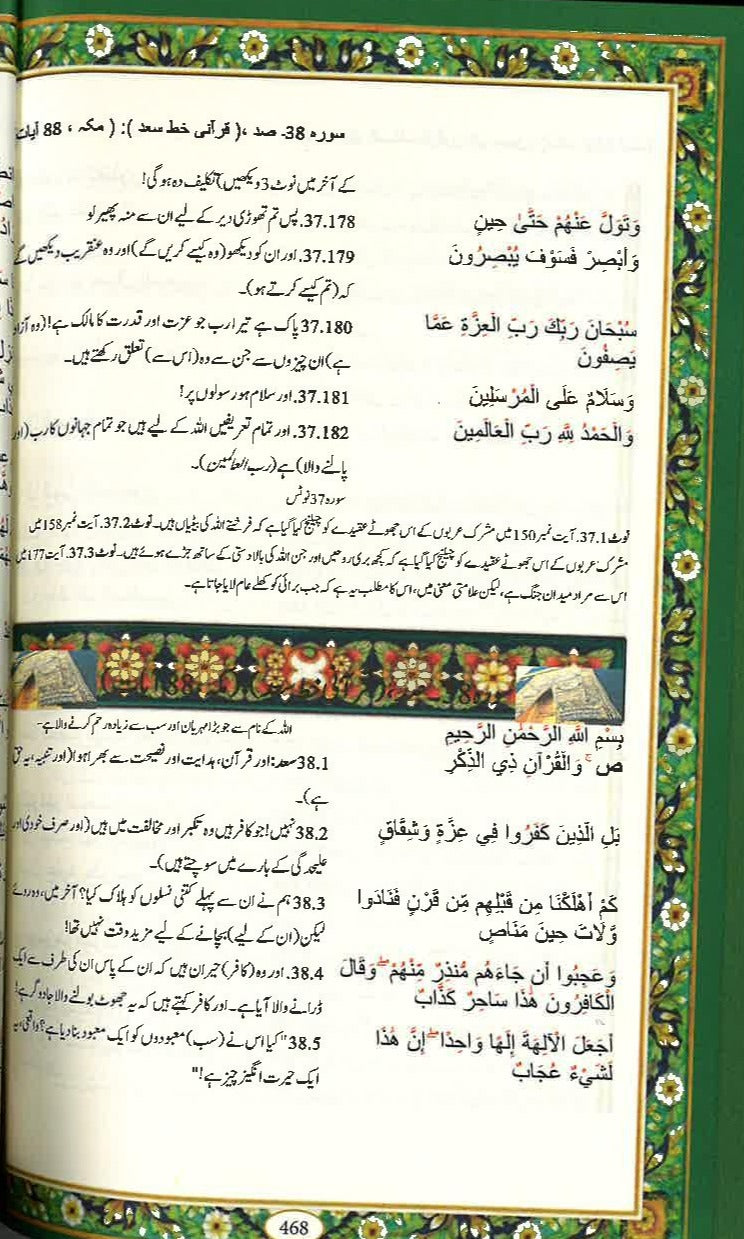 سورہ 38۔ صد ،( قرآنی خط سعد ): ( مکہ ، 88 آیات
کے آخر میں نوٹ 3 دیکھیں) تکلیف دہ ہو گی!
وَتَوَلَّ عَنْهُمْ حَتَّىٰ حِينٍ
37.178. پس تم تھوڑی دیر کے لیے ان سے منہ پھیر لو
وَأَبْصِرْ فَسَوْفَ يُبْصِرُونَ
37.179. اور ان کو دیکھو (وہ کیسے کریں گے) اور وہ عنقریب دیکھیں گے
کہ (تم کیسے کرتے ہو)۔
سُبْحَانَ رَبِّكَ رَبِّ الْعِزَّةِ عَمَّا
يَصِفُونَ
37.180. پاک ہے تیرا رب جو عزت اور قدرت کا مالک ہے! (وہ آزاد
ہے) ان چیزوں سے جن سے وہ (اس سے) تعلق رکھتے ہیں۔
وَسَلَامٌ عَلَى الْمُرْسَلِينَ
37.181. اور سلام ہو رسولوں پر!
وَالْحَمْدُ لِلَّهِ رَبِّ الْعَالَمِينَ
37.182. اور تمام تعریفیں اللہ کے لیے ہیں جو تمام جہانوں کا رب (اور
پالنے والا) ہے (رب العالمین)۔
سورہ 37 نوٹس
نوٹ 37.1. آیت نمبر 150 میں مشرک عربوں کے اس جھوٹے عقیدے کو چیلنج کیا گیا ہے کہ فرشتے اللہ کی بیٹیاں ہیں۔ نوٹ 37.2. آیت نمبر 158 میں
مشرک عربوں کے اس جھوٹے عقیدے کو چیلنج کیا گیا ہے کہ کچھ بری روحیں اور جن اللہ کی بالادستی کے ساتھ جڑے ہوئے ہیں۔ نوٹ 37.3. آیت 177 میں
اس سے مراد میدان جنگ ہے، لیکن علامتی معنی میں، اس کا مطلب یہ ہے کہ جب برائی کو کھلے عام لایا جاتا ہے۔
بِسْمِ اللَّهِ الرَّحْمَٰنِ الرَّحِيمِ
اللہ کے نام سے جو بڑا مہربان اور سب سے زیادہ رحم کرنے والا ہے۔
ص ۚ وَالْقُرْآنِ ذِي الذِّكْرِ
38.1 سعد: اور قرآن، ہدایت اور نصیحت سے بھرا ہوا (اور تنبیہ، یہ حق
ہے)۔
بَلِ الَّذِينَ كَفَرُوا فِي عِزَّةٍ وَشِقَاقٍ
38.2 نہیں! جو کافر ہیں وہ تکبر اور مخالفت میں ہیں (اور صرف خودی اور
علیحدگی کے بارے میں سوچتے ہیں)۔
كَمْ أَهْلَكْنَا مِن قَبْلِهِم مِّن قَرْنٍ فَنَادَوا
وَّلَاتَ حِينَ مَنَاصٍ
38.3 ہم نے ان سے پہلے کتنی نسلوں کو ہلاک کیا؟ آخر میں، وہ روئے
لیکن (ان کے لیے) بچانے کے لیے مزید وقت نہیں تھا!
وَعَجِبُوا أَن جَاءَهُم مُّنذِرٌ مِّنْهُمْ ۖ وَقَالَ
الْكَافِرُونَ هَٰذَا سَاحِرٌ كَذَّابٌ
38.4. اور وہ (کافر) حیران ہیں کہ ان کے پاس ان کی طرف سے ایک
ڈرانے والا آیا ہے۔ اور کافر کہتے ہیں کہ یہ جھوٹ بولنے والا جادوگر ہے!
أَجَعَلَ الْآلِهَةَ إِلَٰهًا وَاحِدًا ۖ إِنَّ هَٰذَا
لَشَيْءٌ عُجَابٌ
38.5 "کیا اس نے (سب) معبودوں کو ایک معبود بنا دیا ہے؟ واقعی، یہ
ایک حیرت انگیز چیز ہے!"
468